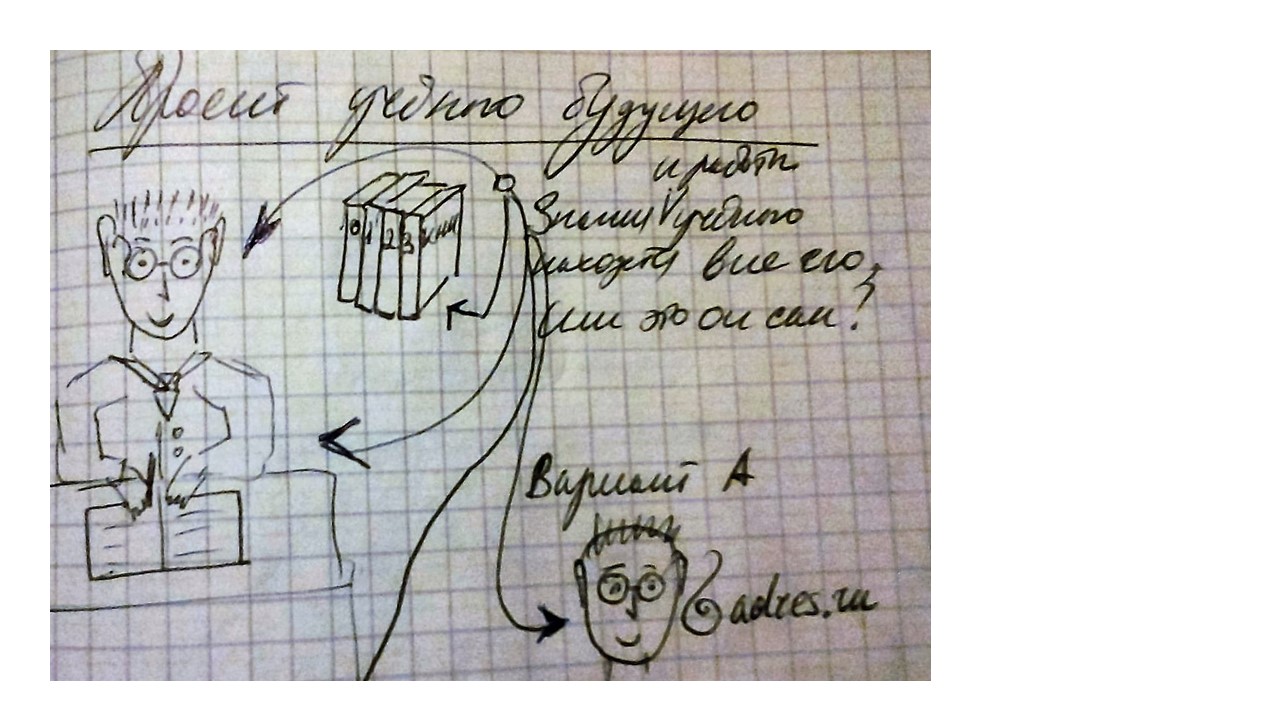 Проект ученого будущего
и работы
Знания ученого
находятся вне его,
или это он сам?
0 1 2 3
Вариант А
@adres.ru